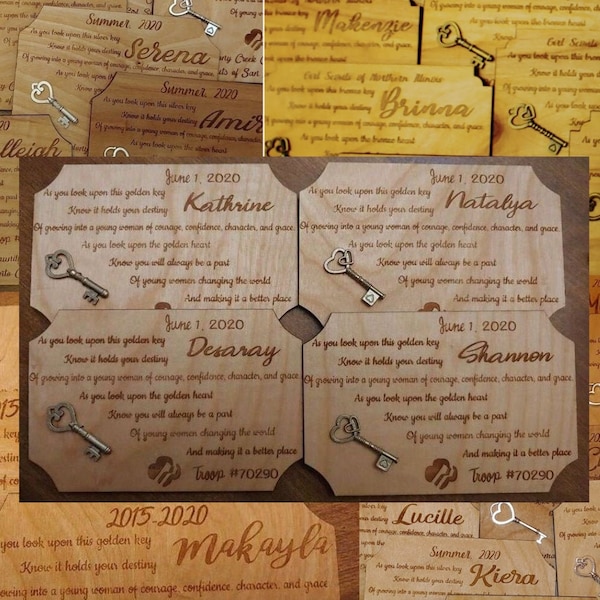 Summer, 2020
Serena
you look upon this silver key
Know it holds your destiny
young woman of courage, confidence, character, and grace.
As you look
Summer, 2020
As you look upon this silver key
Know it holds your destiny
Amir
Of growing into a young woman of courage, confidence, character, and grace.
lleigh
Makenzie
Girl Scouts
Girl Scouts of Northern Illinois
As you look upon the bronze key
Know it holds your destiny
Brinna
Of growing into a young woman of courage, confidence, character, and grace.
As you look upon the bronze heart
June 1, 2020
As you look upon this golden key
Kathrine
Know it holds your destiny
Of growing into a young woman of courage, confidence, character, and grace.
As you look upon the golden heart
Know you will always be a part
Of young women changing the world
And making it a better place
June 1, 2020
As you look upon this golden key
Natalya
Know it holds your destiny
Of growing into a young woman of courage, confidence, character, and grace.
As you look upon the golden heart
Know you will always be a part
Of young women changing the world
And making it a better place
June 1, 2020
As you look upon this golden key
Desaray
Know it holds your destiny
Of growing into a young woman of courage, confidence, character, and grace.
As you look upon the golden heart
Know you will always be a part
Of young women changing the world
And making it a better place
Troop #70290
June 1, 2020
As you look upon this golden key
Shannon
Know it holds your destiny
Of growing into a young woman of courage, confidence, character, and grace.
As you look upon the golden heart
Know you will always be a part
Of young women changing the world
And making it a better place
Troop #70290
2015-2020
you look upon this golden key
Makayla
Know it holds your destiny
growing into a young woman of courage, confidence, character, and grace.
Lucille
Summer, 2020
As you look upon this silver key
Know it holds your destiny
Kiera
Of growing into a young woman of courage, confidence, character, and grace.